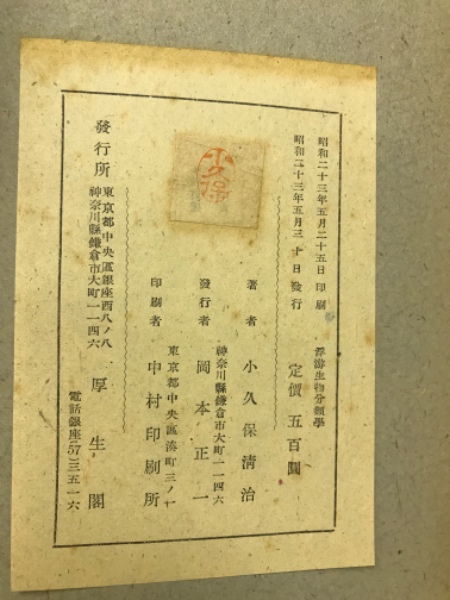 昭和二十三年五月二十五日 印刷
昭和二十三年五月三十日 發行
浮游生物分類學
定價 五百圓
小久保
著者 小久保清治
神奈川縣鎌倉市大町一一四六
發行者 岡本正一
東京都中央區湊町三ノ一
印刷者 中村印刷所
發行所
東京都中央區銀座西八ノ八
神奈川縣鎌倉市大町一一四六
厚生閣
電話銀座(57)三五一六